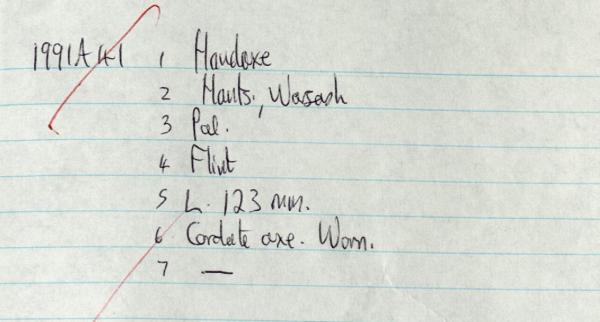 1991A41 1 Handaxe
2 Hants., Warsash
3 Pal.
4 Flint
5 L. 123 mm.
6 Cordate axe. Worn.
7 —